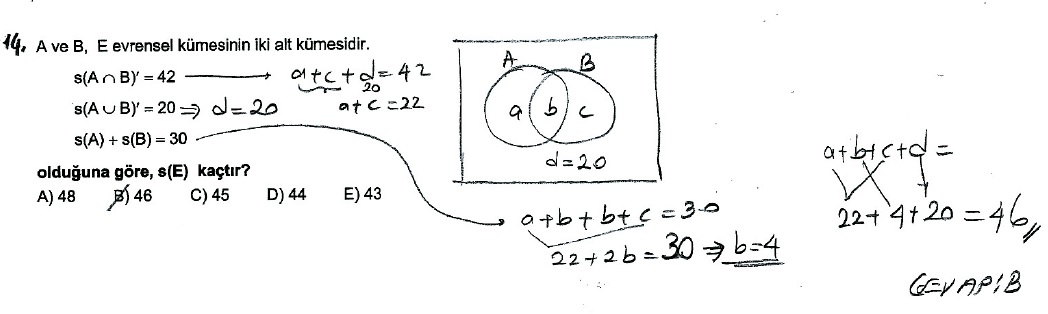 14. A ve B, E evrensel kümesinin iki alt kümesidir.
s(A ∩ B)' = 42 → a+c+d=42
20
s(A ∪ B)' = 20 ⇒ d=20 a+c=22
s(A) + s(B) = 30
olduğuna göre, s(E) kaçtır?
A) 48 B) 46 C) 45 D) 44 E) 43
A B
a b c
d=20
a+b+b+c=30
22+2b=30 ⇒ b=4
a+b+c+d=
22+4+20=46
CEVAP:B